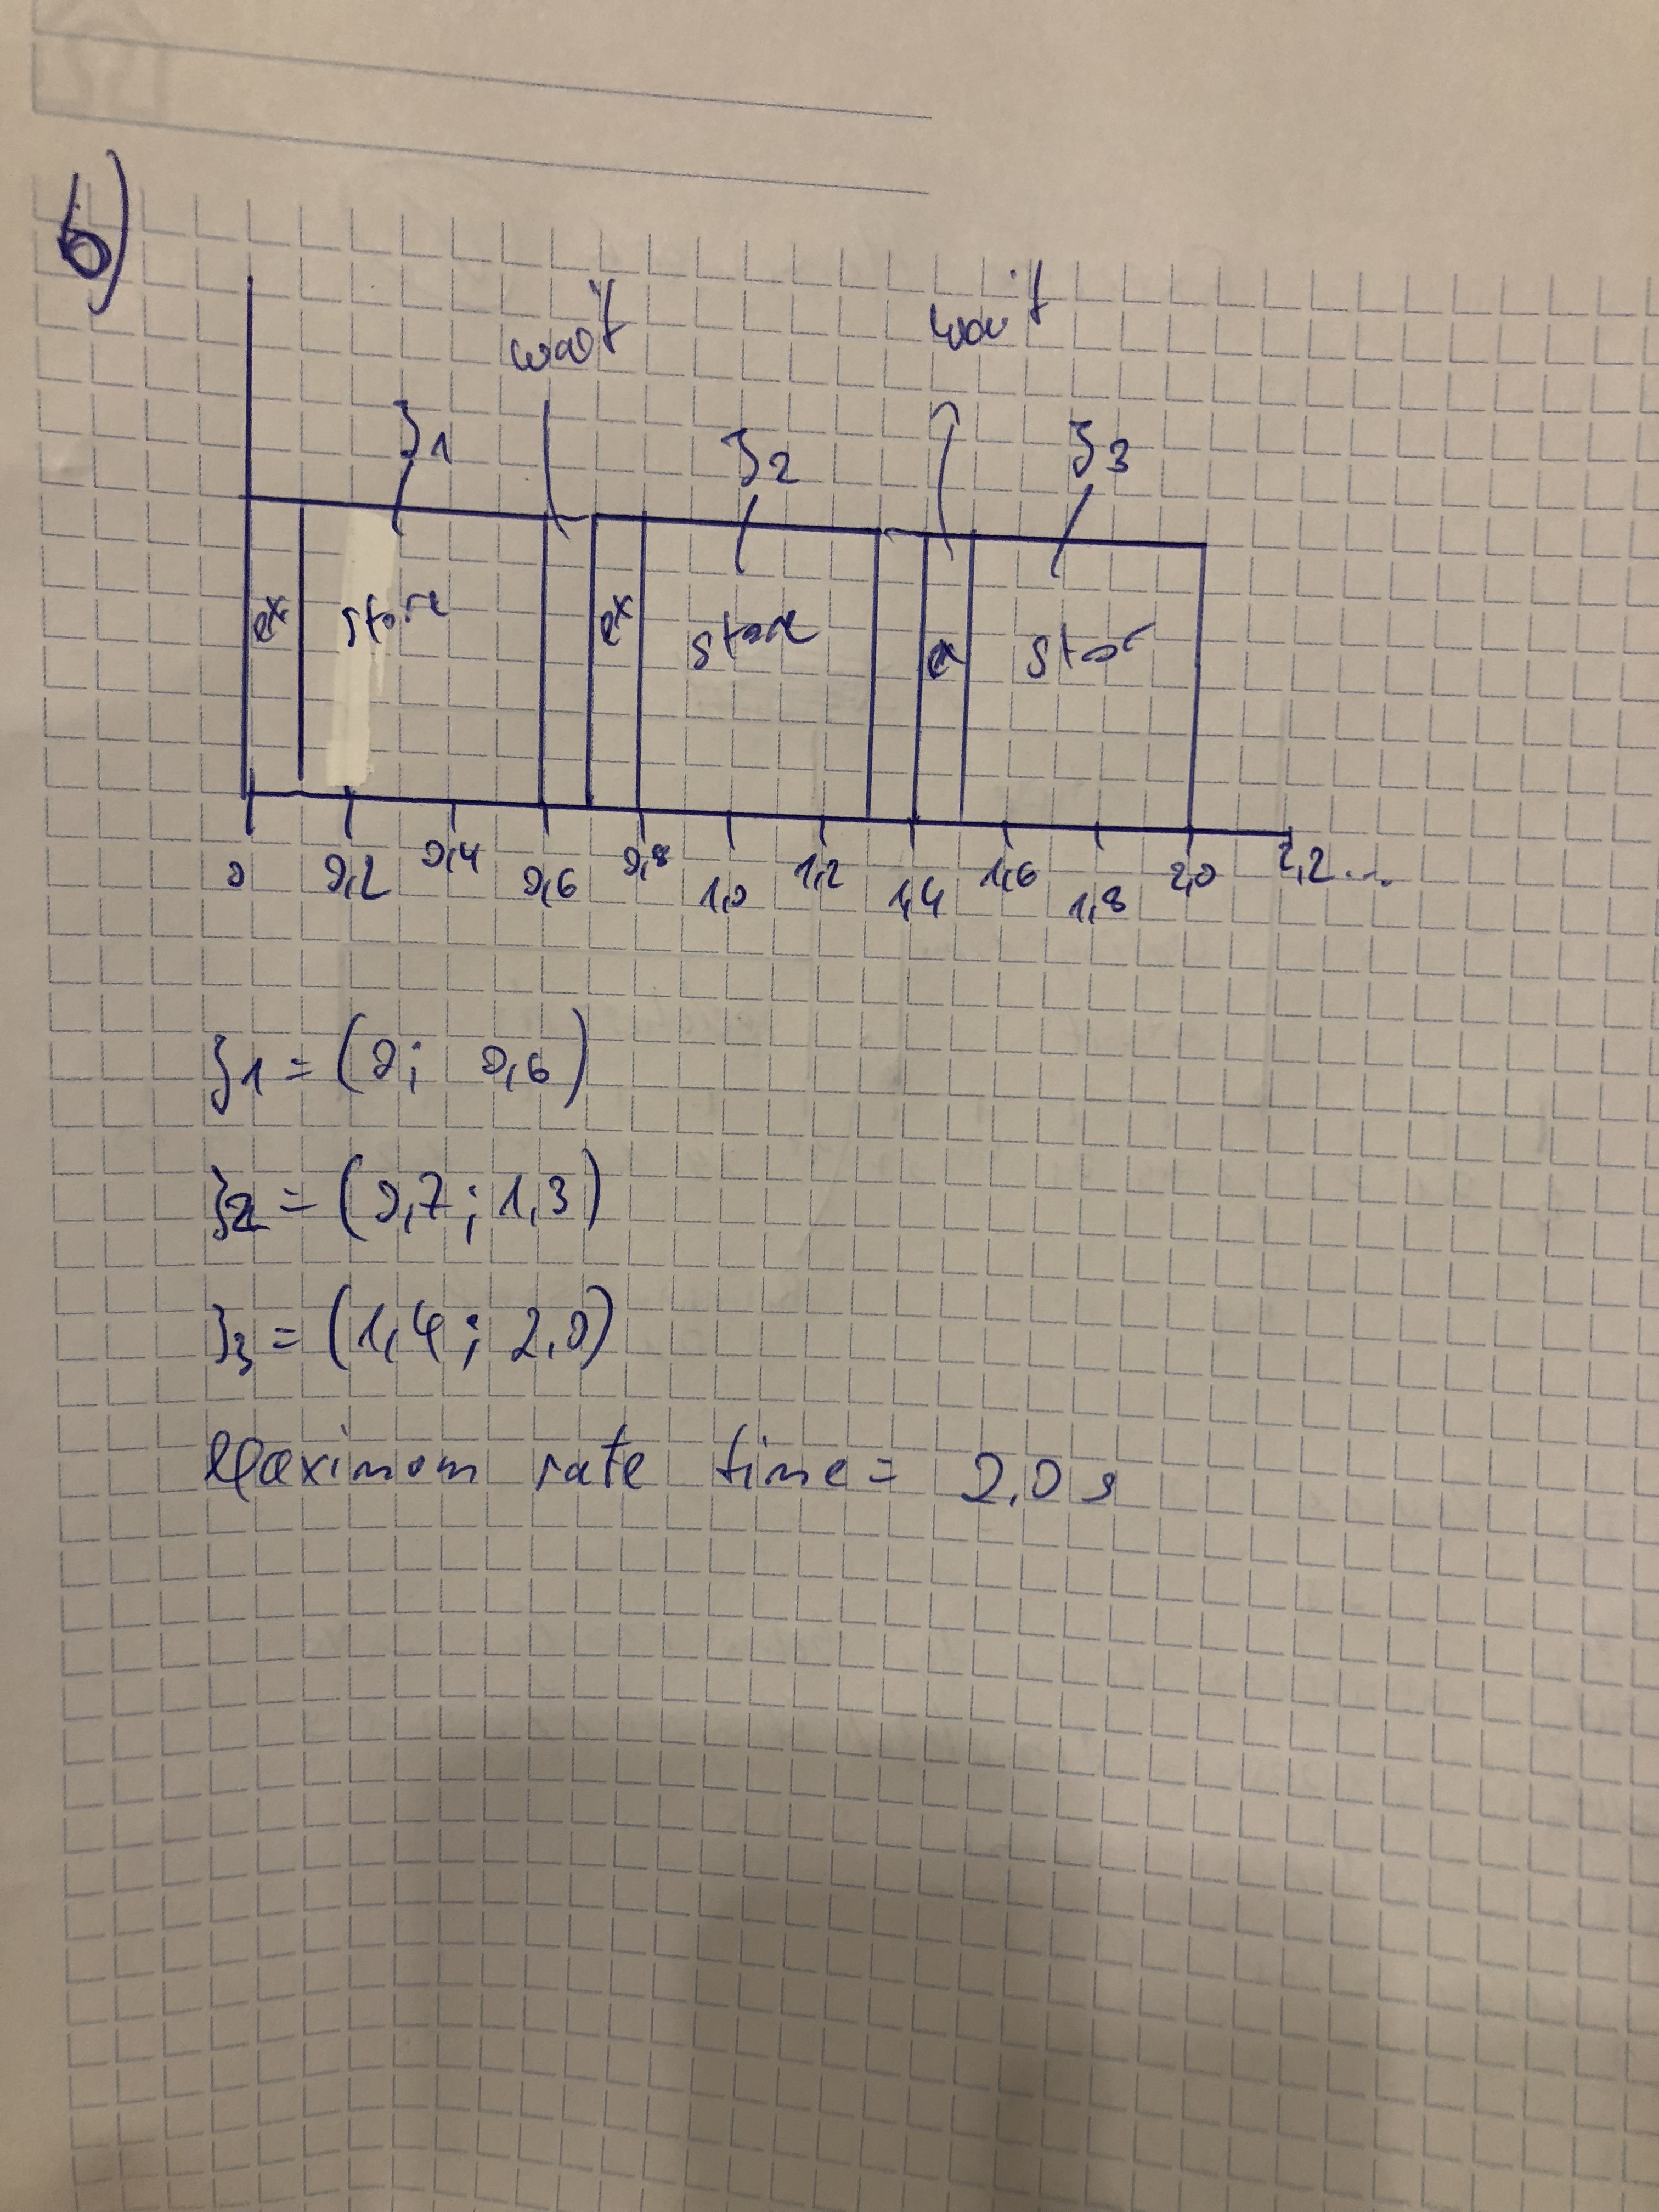 b)
wait wait
ʒ1 ʒ2 ʒ3
ex store ex store ex stor
0 0,2 0,4 0,6 0,8 1,0 1,2 1,4 1,6 1,8 2,0 2,2...
ʒ1 = (0; 0,6)
ʒ2 = (0,7; 1,3)
ʒ3 = (1,4; 2,0)
Maximom rate time = 2,0 s